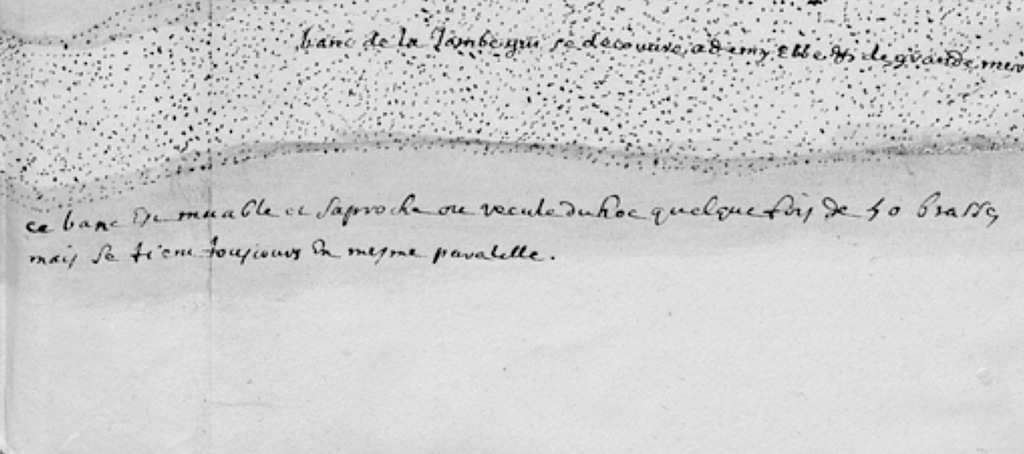 banc de la Jambe qui se decouvre a demy Ebbe de grande mer
ce banc Est muable et saproche ou recule du hoc quelque fois de 50 brasses
mais se tient tousjours En mesme paralelle.